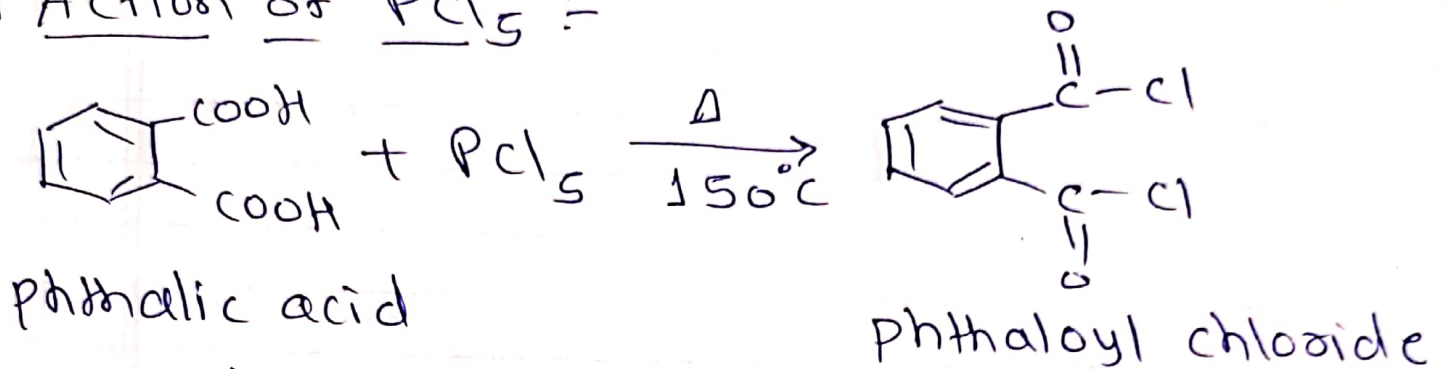 Action of PCl5 :-
COOH
COOH
+ PCl5
Δ
150°C
O
C-Cl
C-Cl
O
phthalic acid
phthaloyl chloride